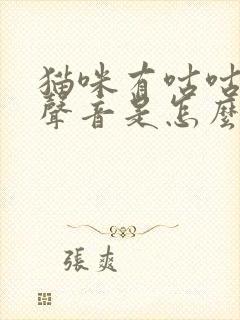 猫咪有咕咕
聲音是怎麼
張爽